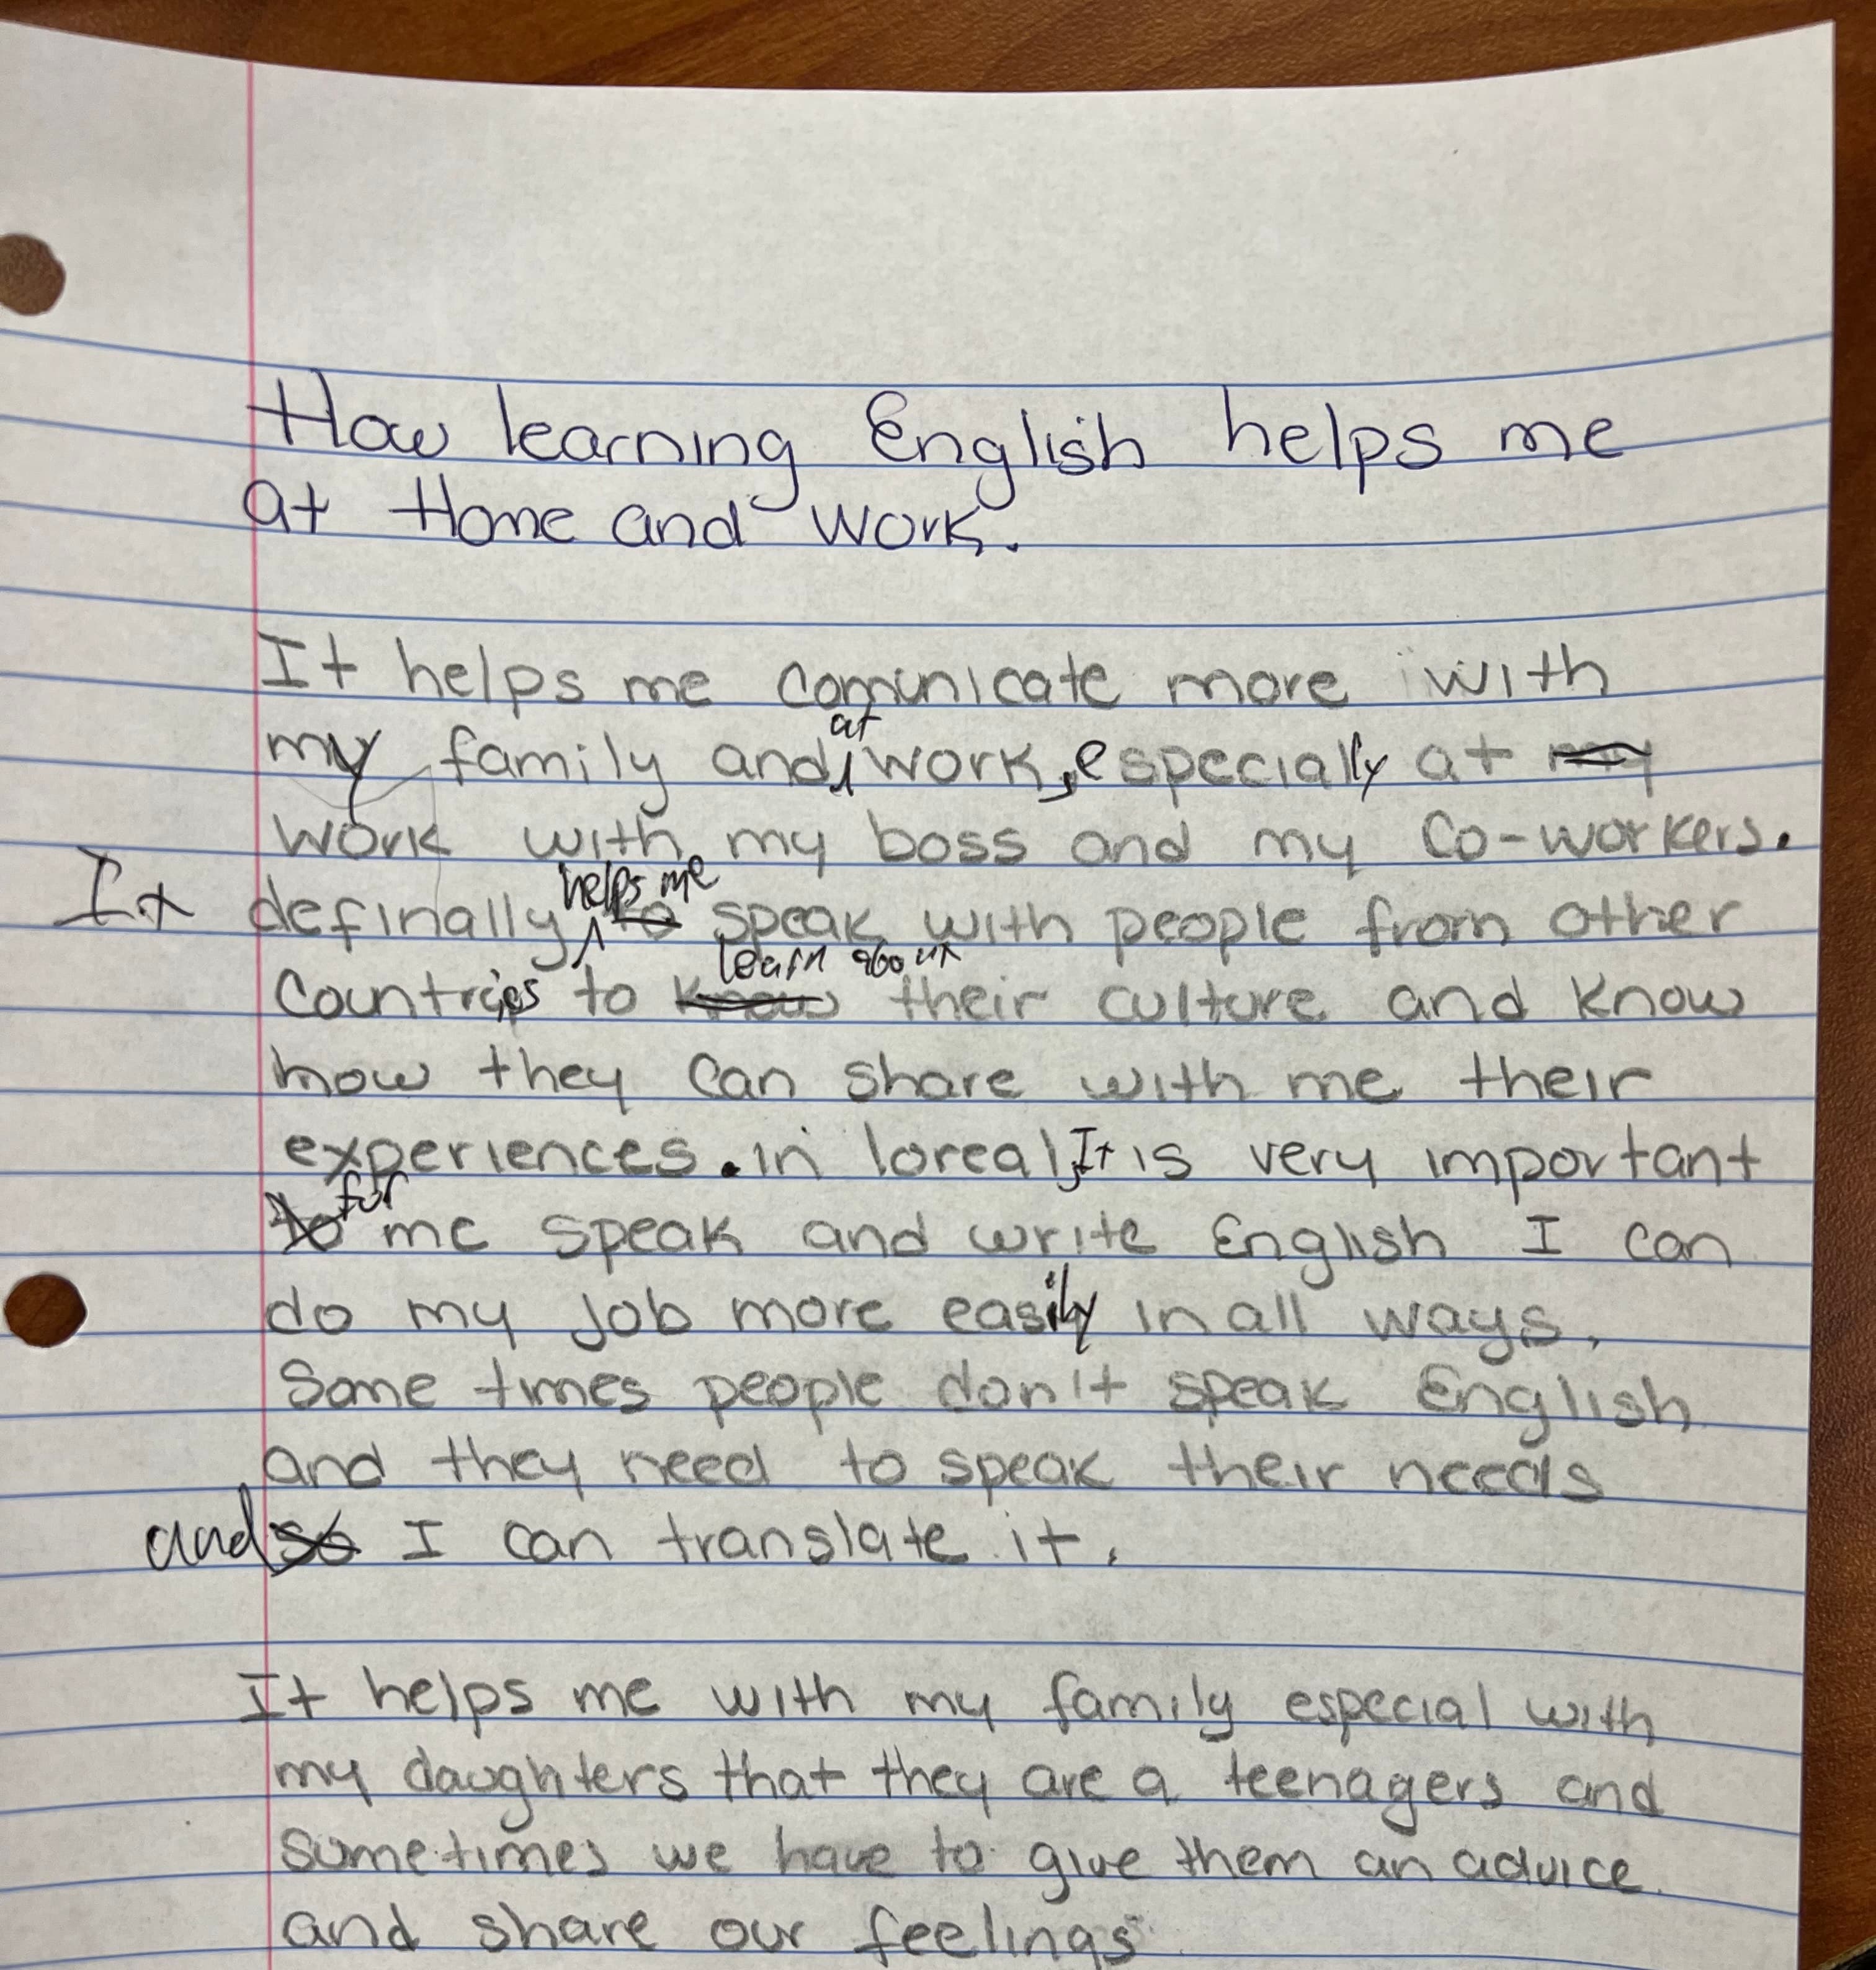 How learning English helps me
at Home and work.
It helps me comunicate more with
my family and at work, especially at my
work with my boss and my Co-workers.
It definally helps me to speak with people from other
Countries to know learn about their culture and know
how they can share with me their
experiences. in loreal, It is very important
to for me speak and write English I can
do my job more easily in all ways.
Some times people don't speak English
and they need to speak their needs
and so I can translate it.
It helps me with my family especial with
my daughters that they are a teenagers and
sometimes we have to give them an advice
and share our feelings